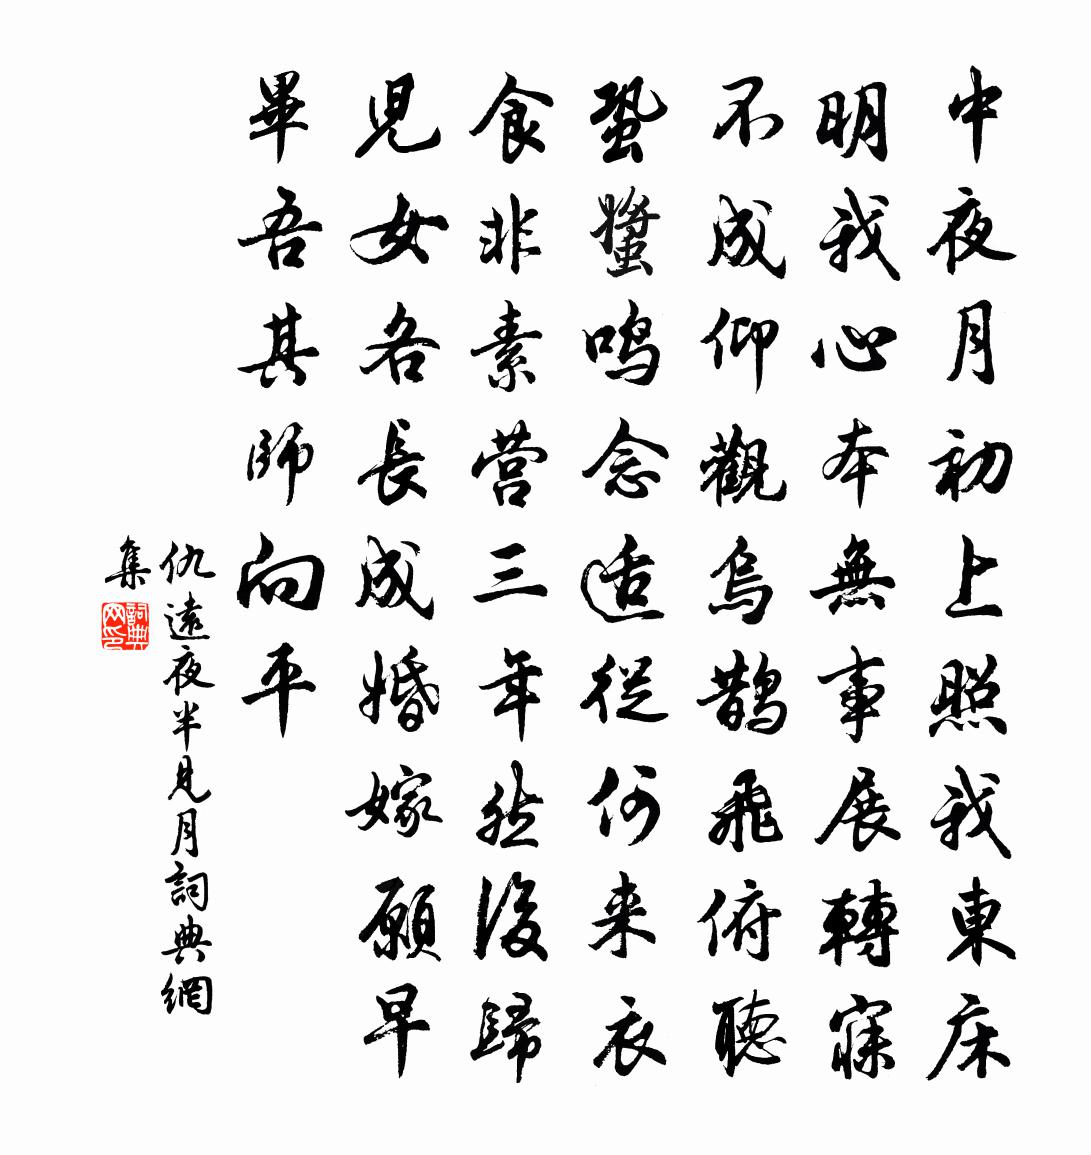 中夜月初上照我東床
明我心本無事展轉寐
不成仰觀烏鵲飛俯聽
蛩螿鳴念適從何来衣
食非素营三年然後歸
児女各長成婚嫁願早
畢吾其師向平
仇遠夜半見月詞典網
集
詞典
网印